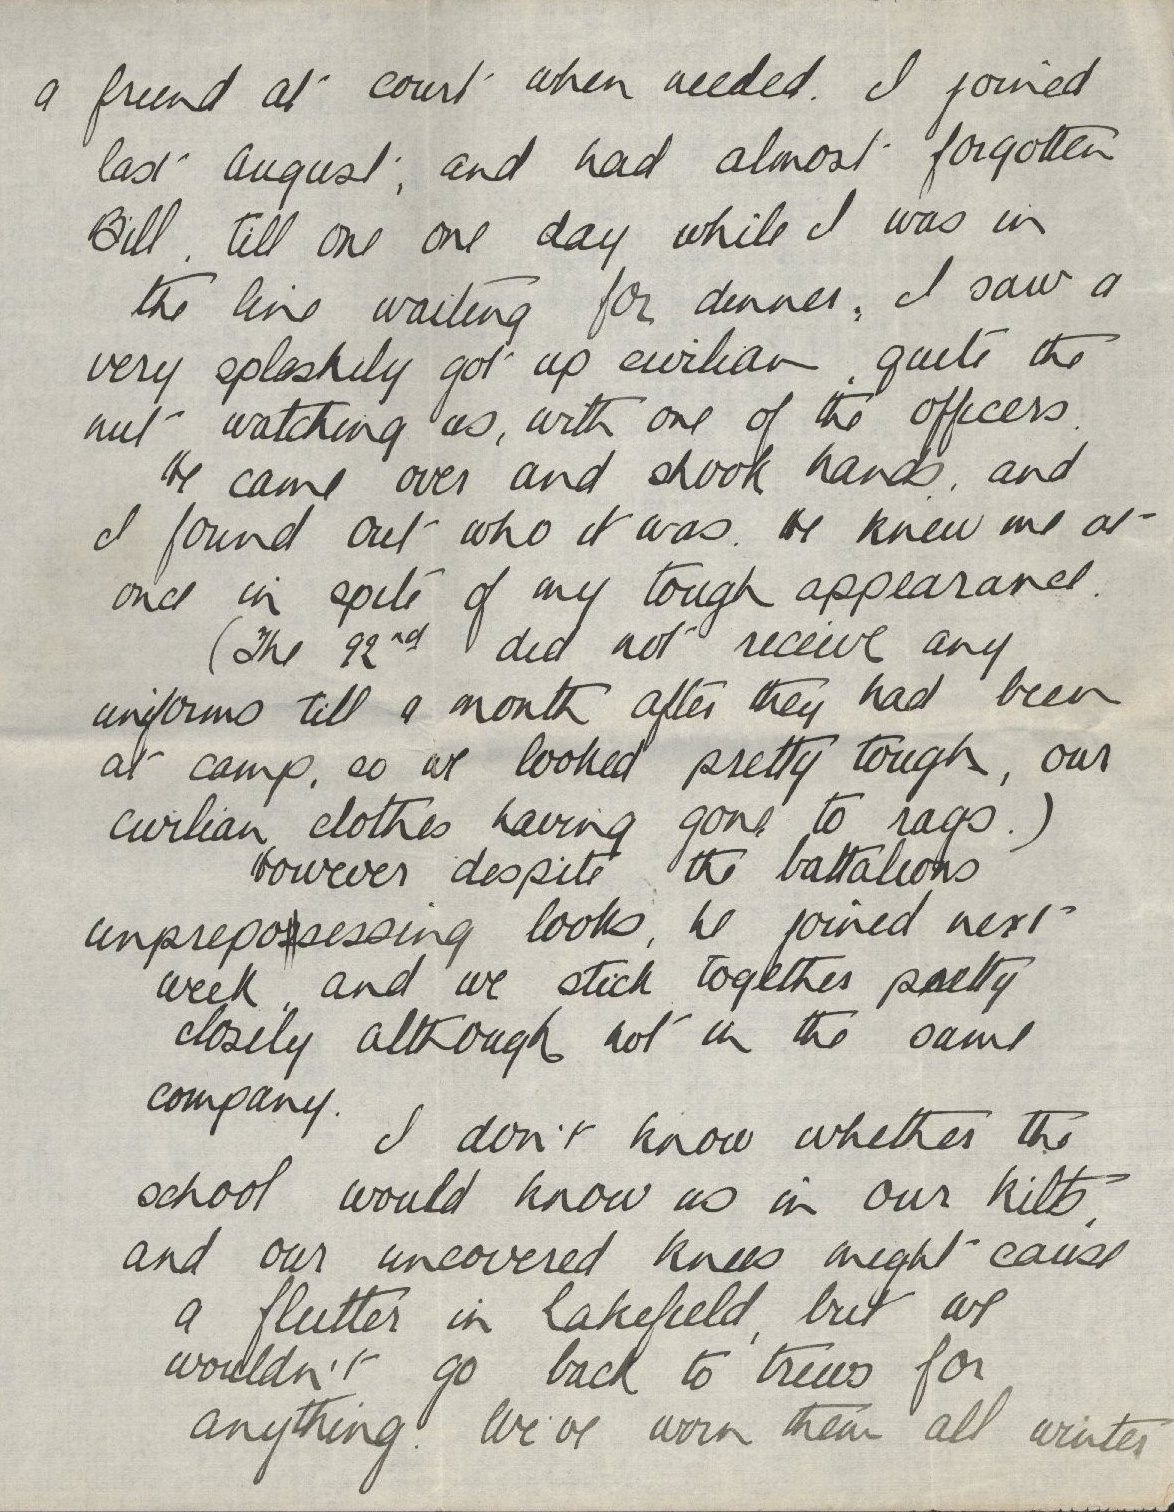 a friend at court when needed. I joined
last August, and had almost forgotten
Bill, till one one day while I was in
the line waiting for dinner, I saw a
very splashily got up civilian, quite the
nut watching us, with one of the officers.
He came over and shook hands, and
I found out who it was. He knew me at
once in spite of my tough appearance.
(The 92nd did not receive any
uniforms till a month after they had been
at camp, so we looked pretty tough, our
civilian clothes having gone to rags.)
However despite the battalions
unprepossessing looks, he joined next
week, and we stick together pretty
closely although not in the same
company.
I don't know whether the
school would know us in our kilts,
and our uncovered knees might cause
a flutter in Lakefield, but we
wouldn't go back to trews for
anything. We've worn them all winter